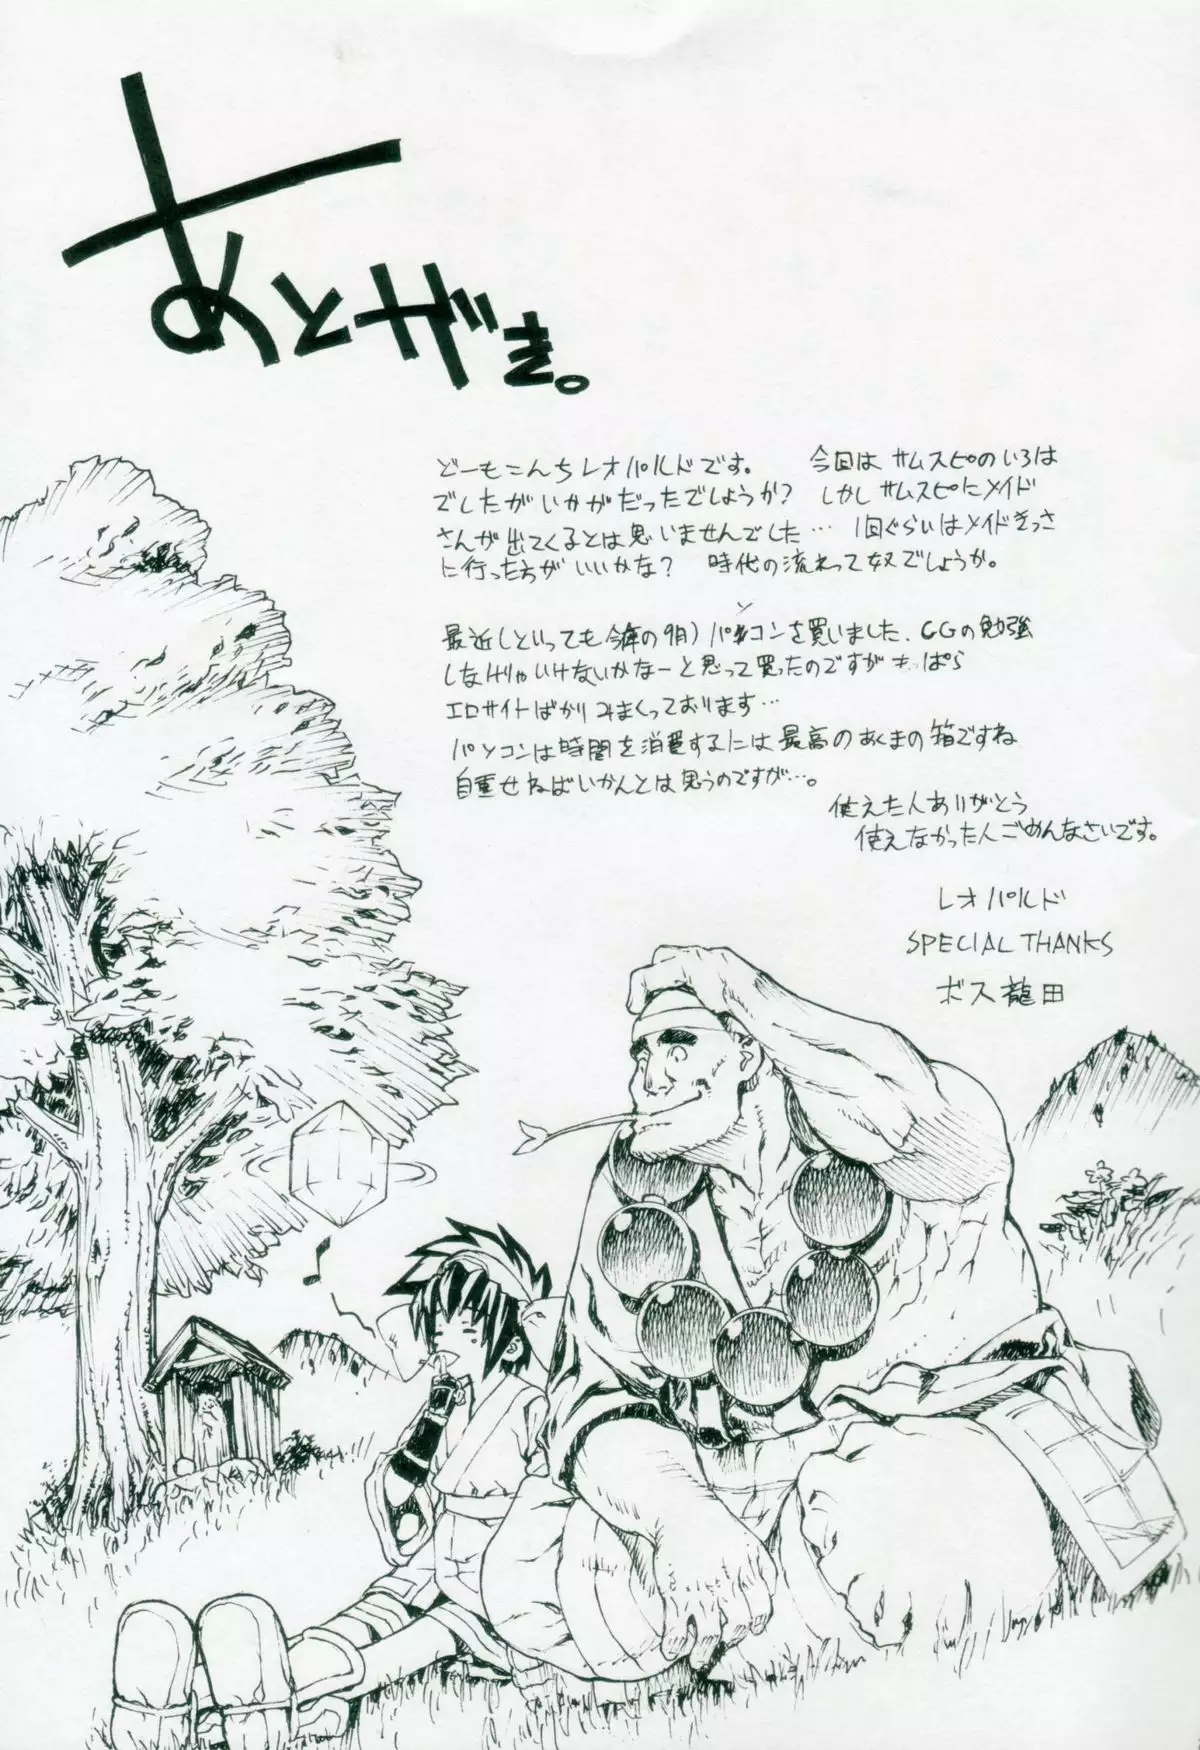 あとがき。
どーもこんちレオパルドです。 今回はサムスピのいろは
でしたがいかがだったでしょうか? しかしサムスピにメイド
さんが出てくるとは思いませんでした… 1回ぐらいはメイドきっさ
に行った方がいいかな? 時代の流れって奴でしょうか。
最近(といっても今年の9月)パソコンを買いました。CGの勉強
しなけりゃいけないかなーと思って買ったのですがもっぱら
エロサイトばかりみまくっております…
パソコンは時間を消費するには最高のあくまの箱ですね
自重せねばいかんとは思うのですが…。
使えた人ありがとう
使えなかった人ごめんなさいです。
レオパルド
SPECIAL THANKS
ボス龍田